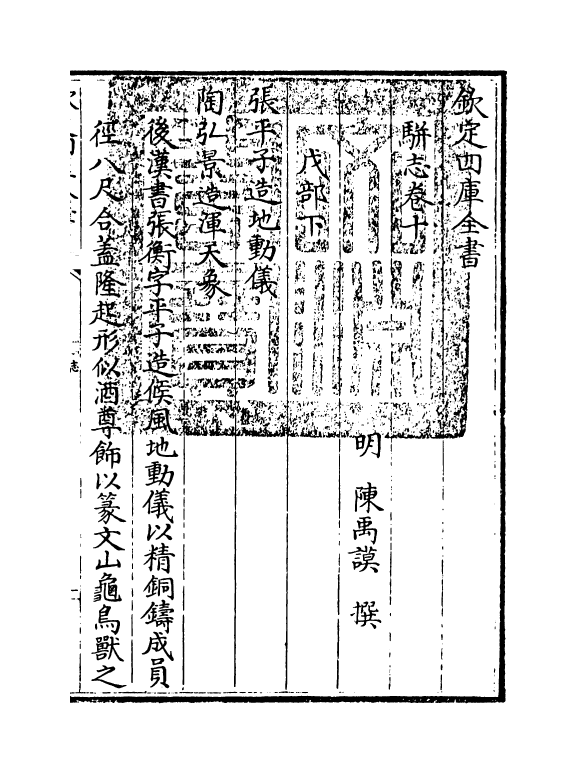 欽定四庫全書
駢志卷十
戊部下
明 陳禹謨 撰
張平子造地動儀
陶弘景造渾天象
後漢書張衡字平子造候風地動儀以精銅鑄成員
徑八尺合蓋隆起形似酒尊飾以篆文山龜鳥獸之